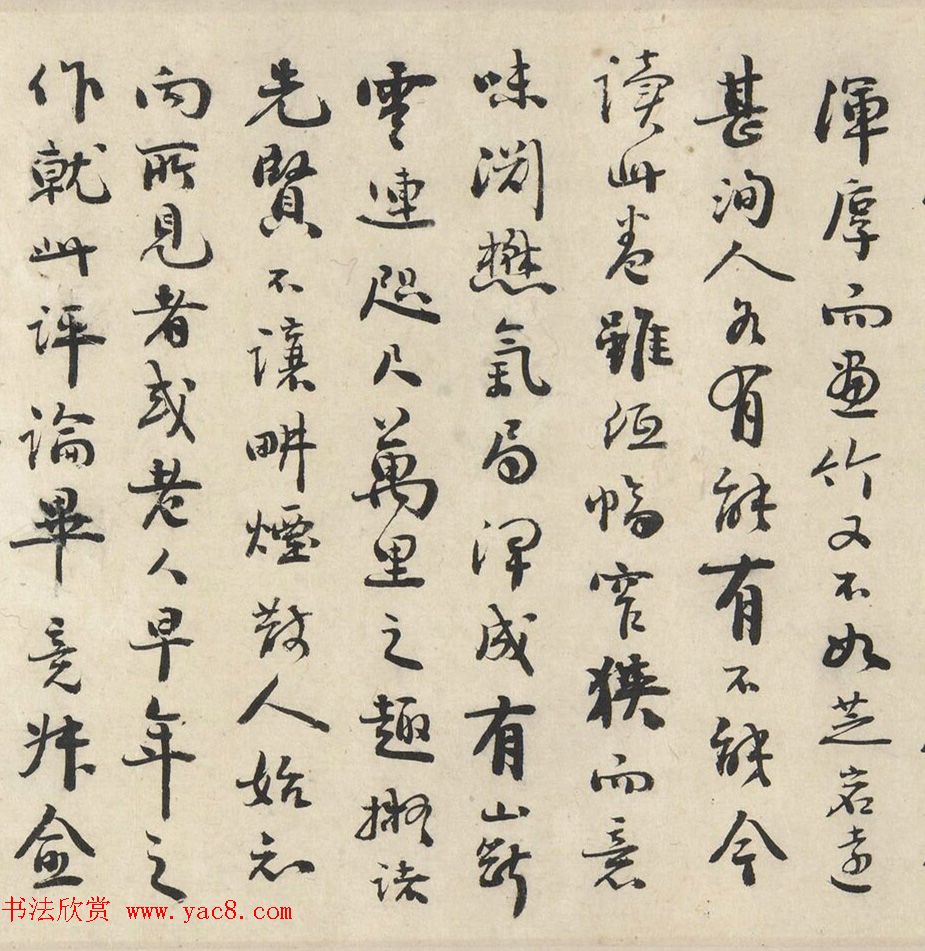 渾厚而畫竹又不如芝岩遠
甚洵人各有能有不能今
讀此卷雖紙幅窄狹而意
味淵懋氣局渾成有山斷
雲連咫尺萬里之趣擬諸
先賢不讓畊煙散人始知
向所見者或老人早年之
作就此評論畢竟
書法欣赏 www.yac8.com